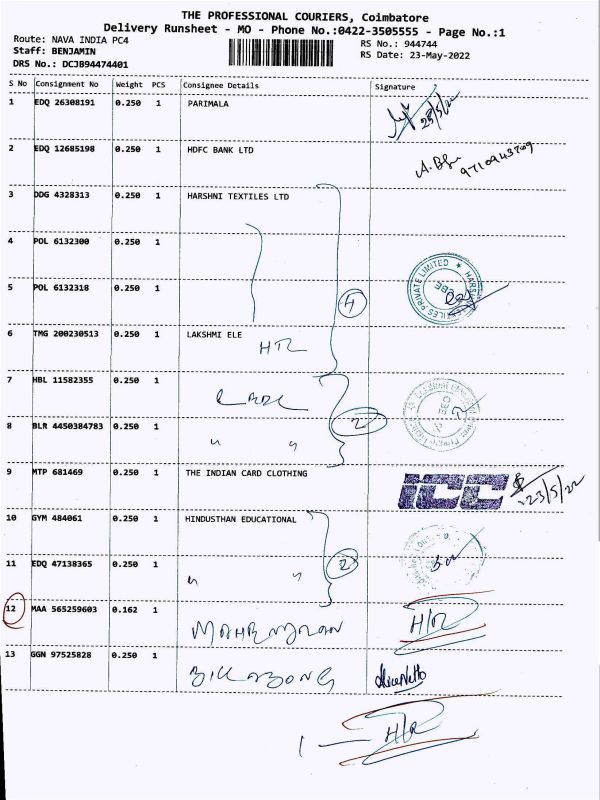 THE PROFESSIONAL COURIERS, Coimbatore
Delivery Runsheet - MO - Phone No.:0422-3505555 - Page No.:1
Route: NAVA INDIA PC4 RS No.: 944744
Staff: BENJAMIN RS Date: 23-May-2022
DRS No.: DCJB94474401
S No Consignment No Weight PCS Consignee Details Signature
1 EDQ 26308191 0.250 1 PARIMALA 23/5/22
2 EDQ 12685198 0.250 1 HDFC BANK LTD
3 DDG 4328313 0.250 1 HARSHNI TEXTILES LTD
4 POL 6132300 0.250 1
5 POL 6132318 0.250 1 4
6 TMG 200230513 0.250 1 LAKSHMI ELE
HTL
7 HBL 11582355 0.250 1
8 BLR 4450384783 0.250 1 " " 2
9 MTP 681469 0.250 1 THE INDIAN CARD CLOTHING ICC 23/5/22
10 GYM 484061 0.250 1 HINDUSTHAN EDUCATIONAL
11 EDQ 47138365 0.250 1 " " 2
12 MAA 565259603 0.162 1 H/R
13 GGN 97525828 0.250 1 BILLABONG
1 — H/R